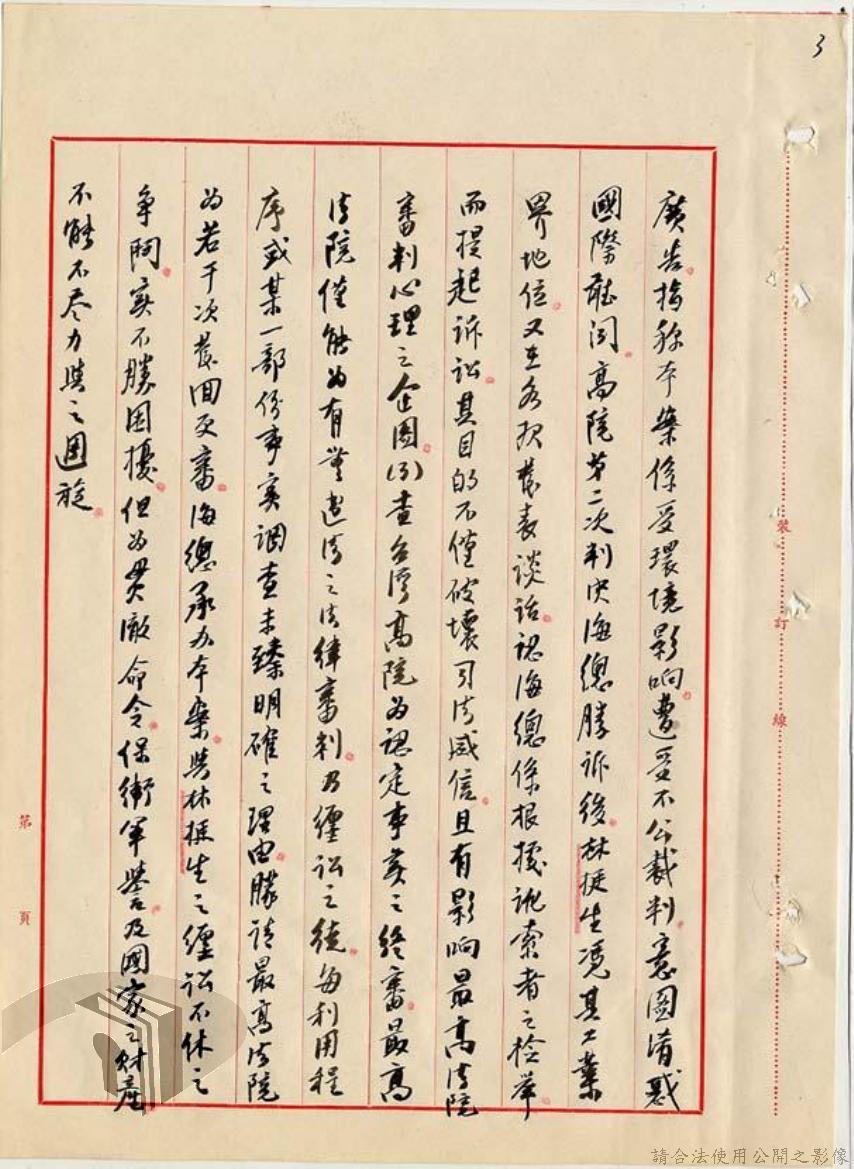 3
廣告。指称本案係受環境影响。遭受不公裁判。意圖淆惑
國際聽聞。高院第二次判決海總勝訴後。林挺生憑其工業
界地位。又在各報發表談話。認海總係根據訛索者之檢舉
而提起訴訟。其目的不僅破壞司法威信。且有影响最高法院
審判心理之企圖。(3)查台灣高院為認定事實之終審。最高
法院僅能為有無違法之法律審判。乃纏訟之徒。每利用程
序或某一部份事實調查未臻明確之理由。朦請最高法院
為若干次發回更審。海總承办本案。與林挺生之纏訟不休之
争鬥。实不勝困擾。但為貫澈命令。保衛軍譽。及國家之財產
不能不尽力與之週旋。
裝訂線
第 頁
請合法使用公開之影像